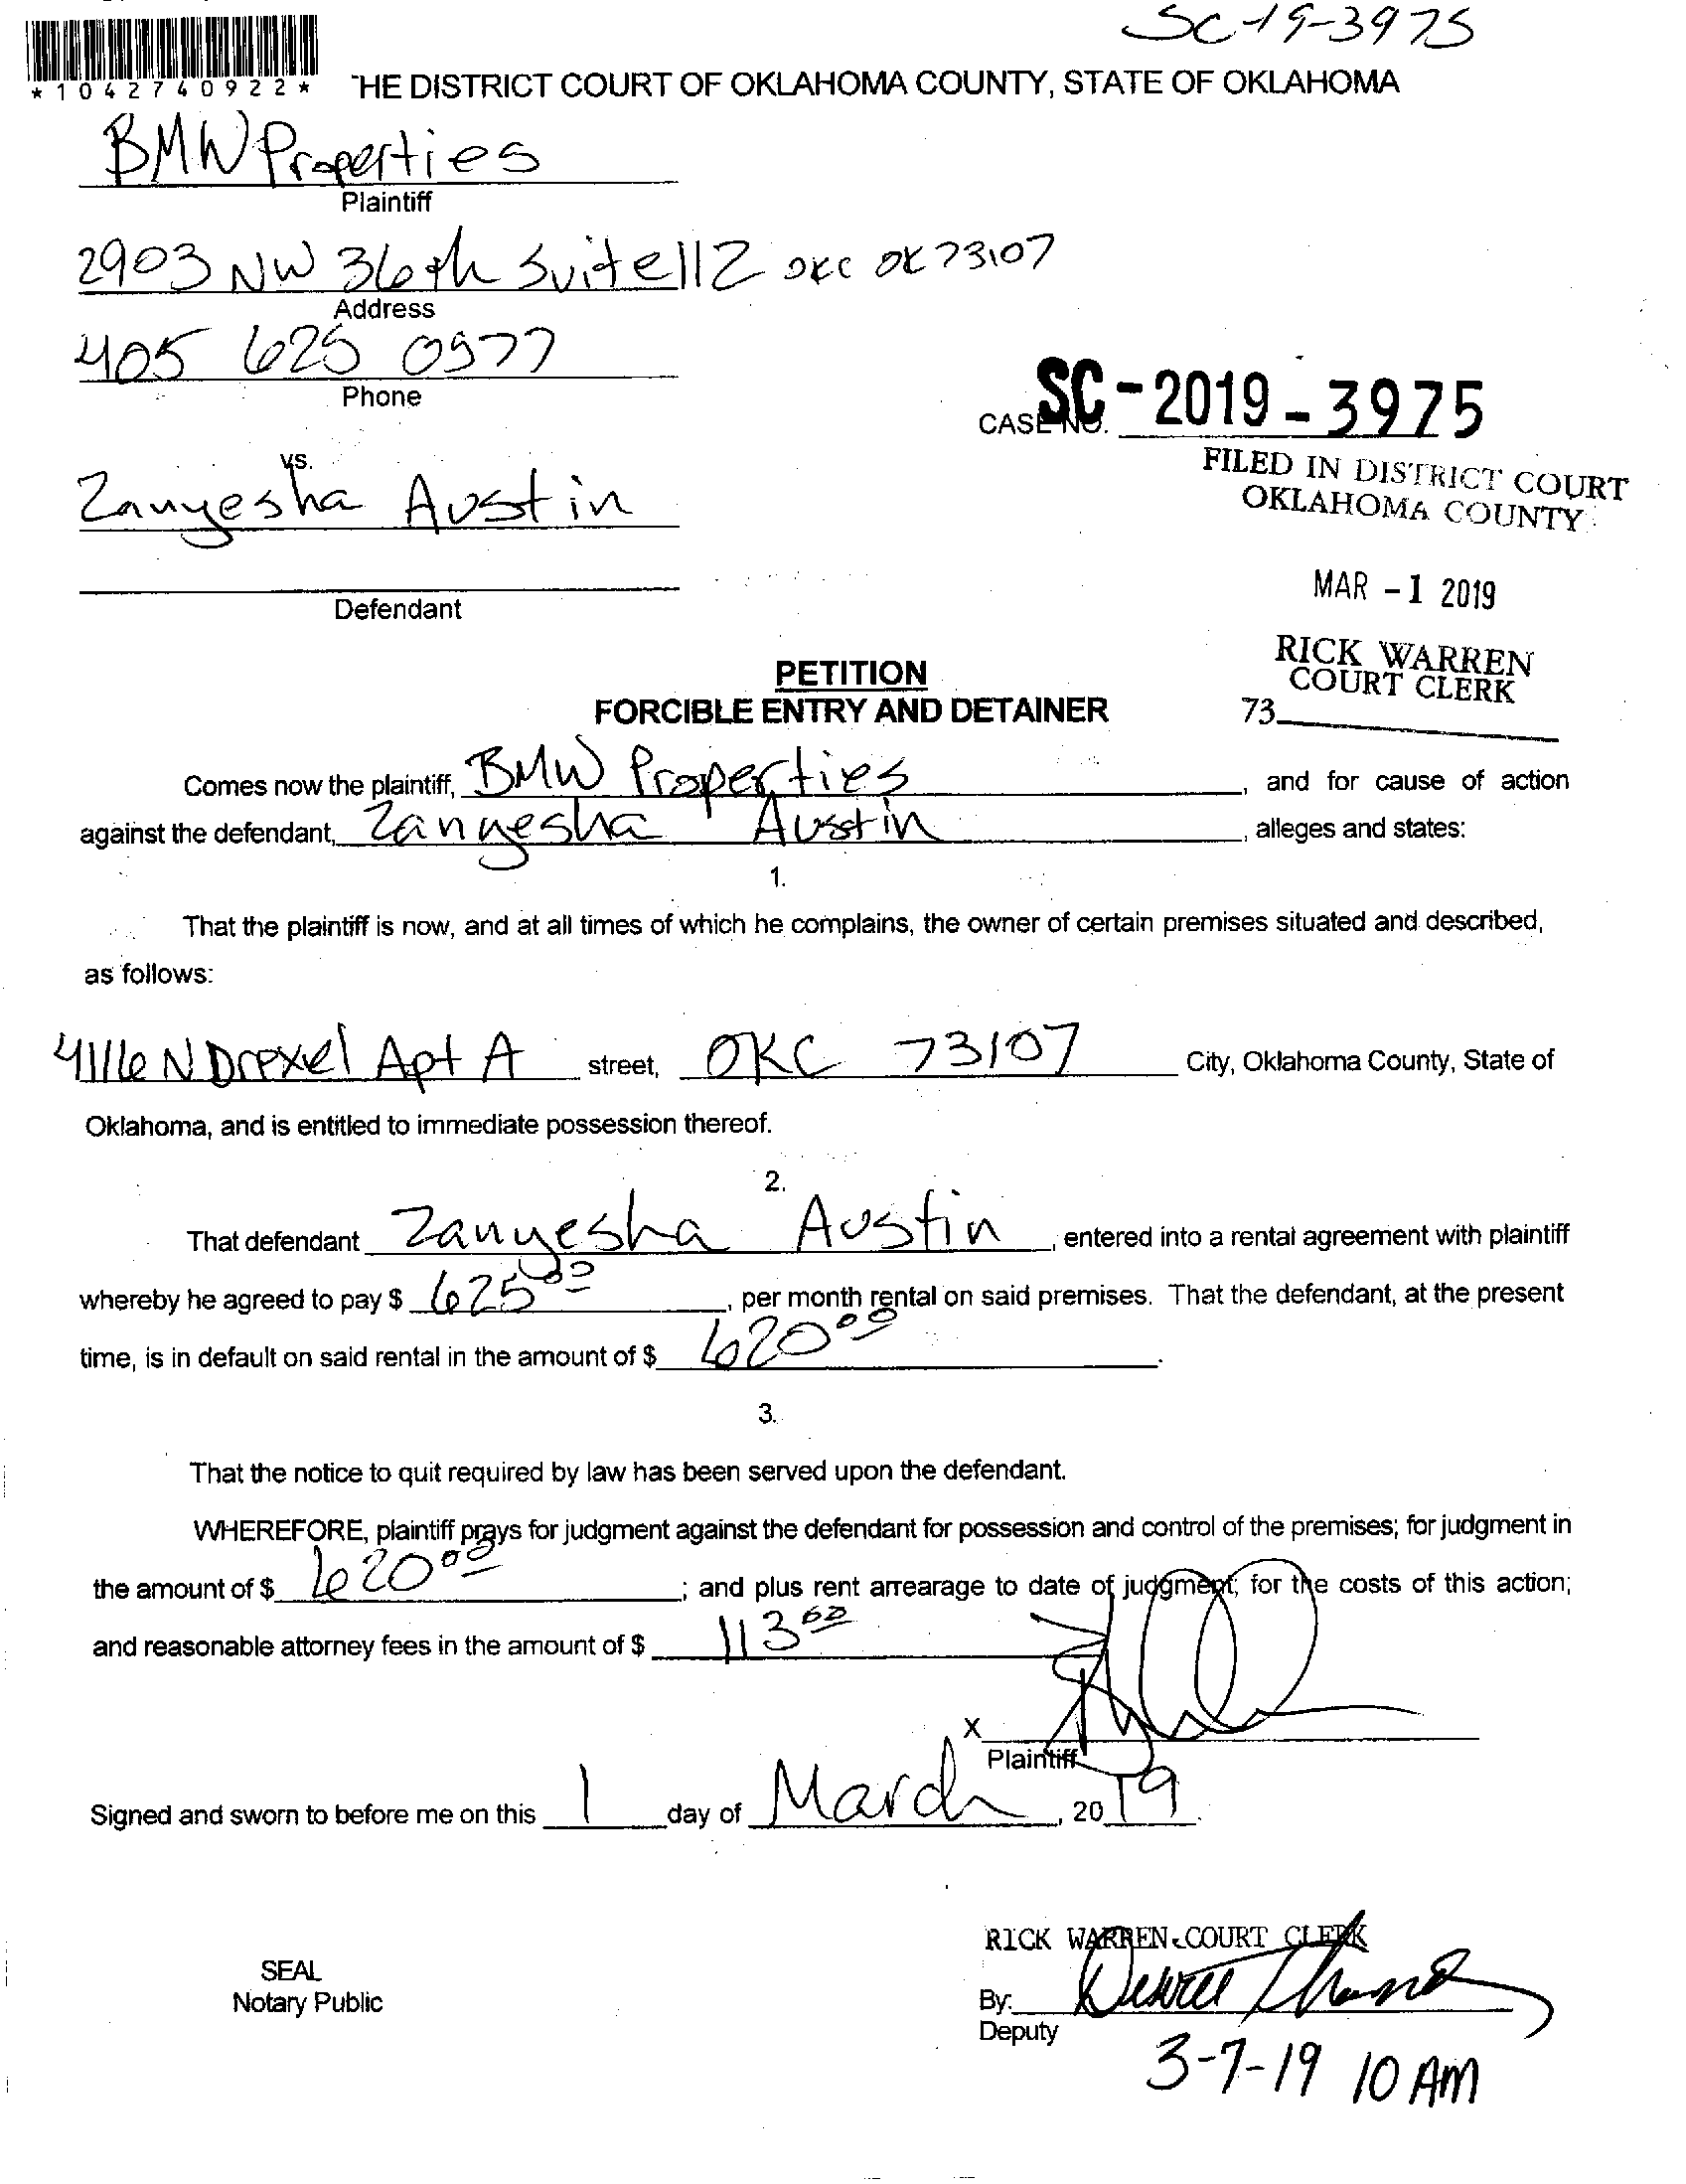 SC-19-3975
*1042740922*
THE DISTRICT COURT OF OKLAHOMA COUNTY, STATE OF OKLAHOMA
BMW Properties
Plaintiff
2903 NW 36th Suite 112 OKC OK 73107
Address
405 625 0977
Phone
CASE NO. SC-2019-3975
FILED IN DISTRICT COURT
OKLAHOMA COUNTY
vs.
Zanyesha Austin
MAR -1 2019
Defendant
RICK WARREN
COURT CLERK
73
PETITION
FORCIBLE ENTRY AND DETAINER
Comes now the plaintiff, BMW Properties, and for cause of action
against the defendant, Zanyesha Austin, alleges and states:
1.
That the plaintiff is now, and at all times of which he complains, the owner of certain premises situated and described,
as follows:
4116 N Drexel Apt A street, OKC 73107 City, Oklahoma County, State of
Oklahoma, and is entitled to immediate possession thereof.
2.
That defendant Zanyesha Austin, entered into a rental agreement with plaintiff
whereby he agreed to pay $ 625.00, per month rental on said premises. That the defendant, at the present
time, is in default on said rental in the amount of $ 620.00.
3.
That the notice to quit required by law has been served upon the defendant.
WHEREFORE, plaintiff prays for judgment against the defendant for possession and control of the premises; for judgment in
the amount of $ 620.00; and plus rent arrearage to date of judgment; for the costs of this action;
and reasonable attorney fees in the amount of $ 113
X
Plaintiff
Signed and sworn to before me on this 1 day of March, 2019.
RICK WARREN COURT CLERK
SEAL
Notary Public
By:
Deputy
3-7-19 10 AM